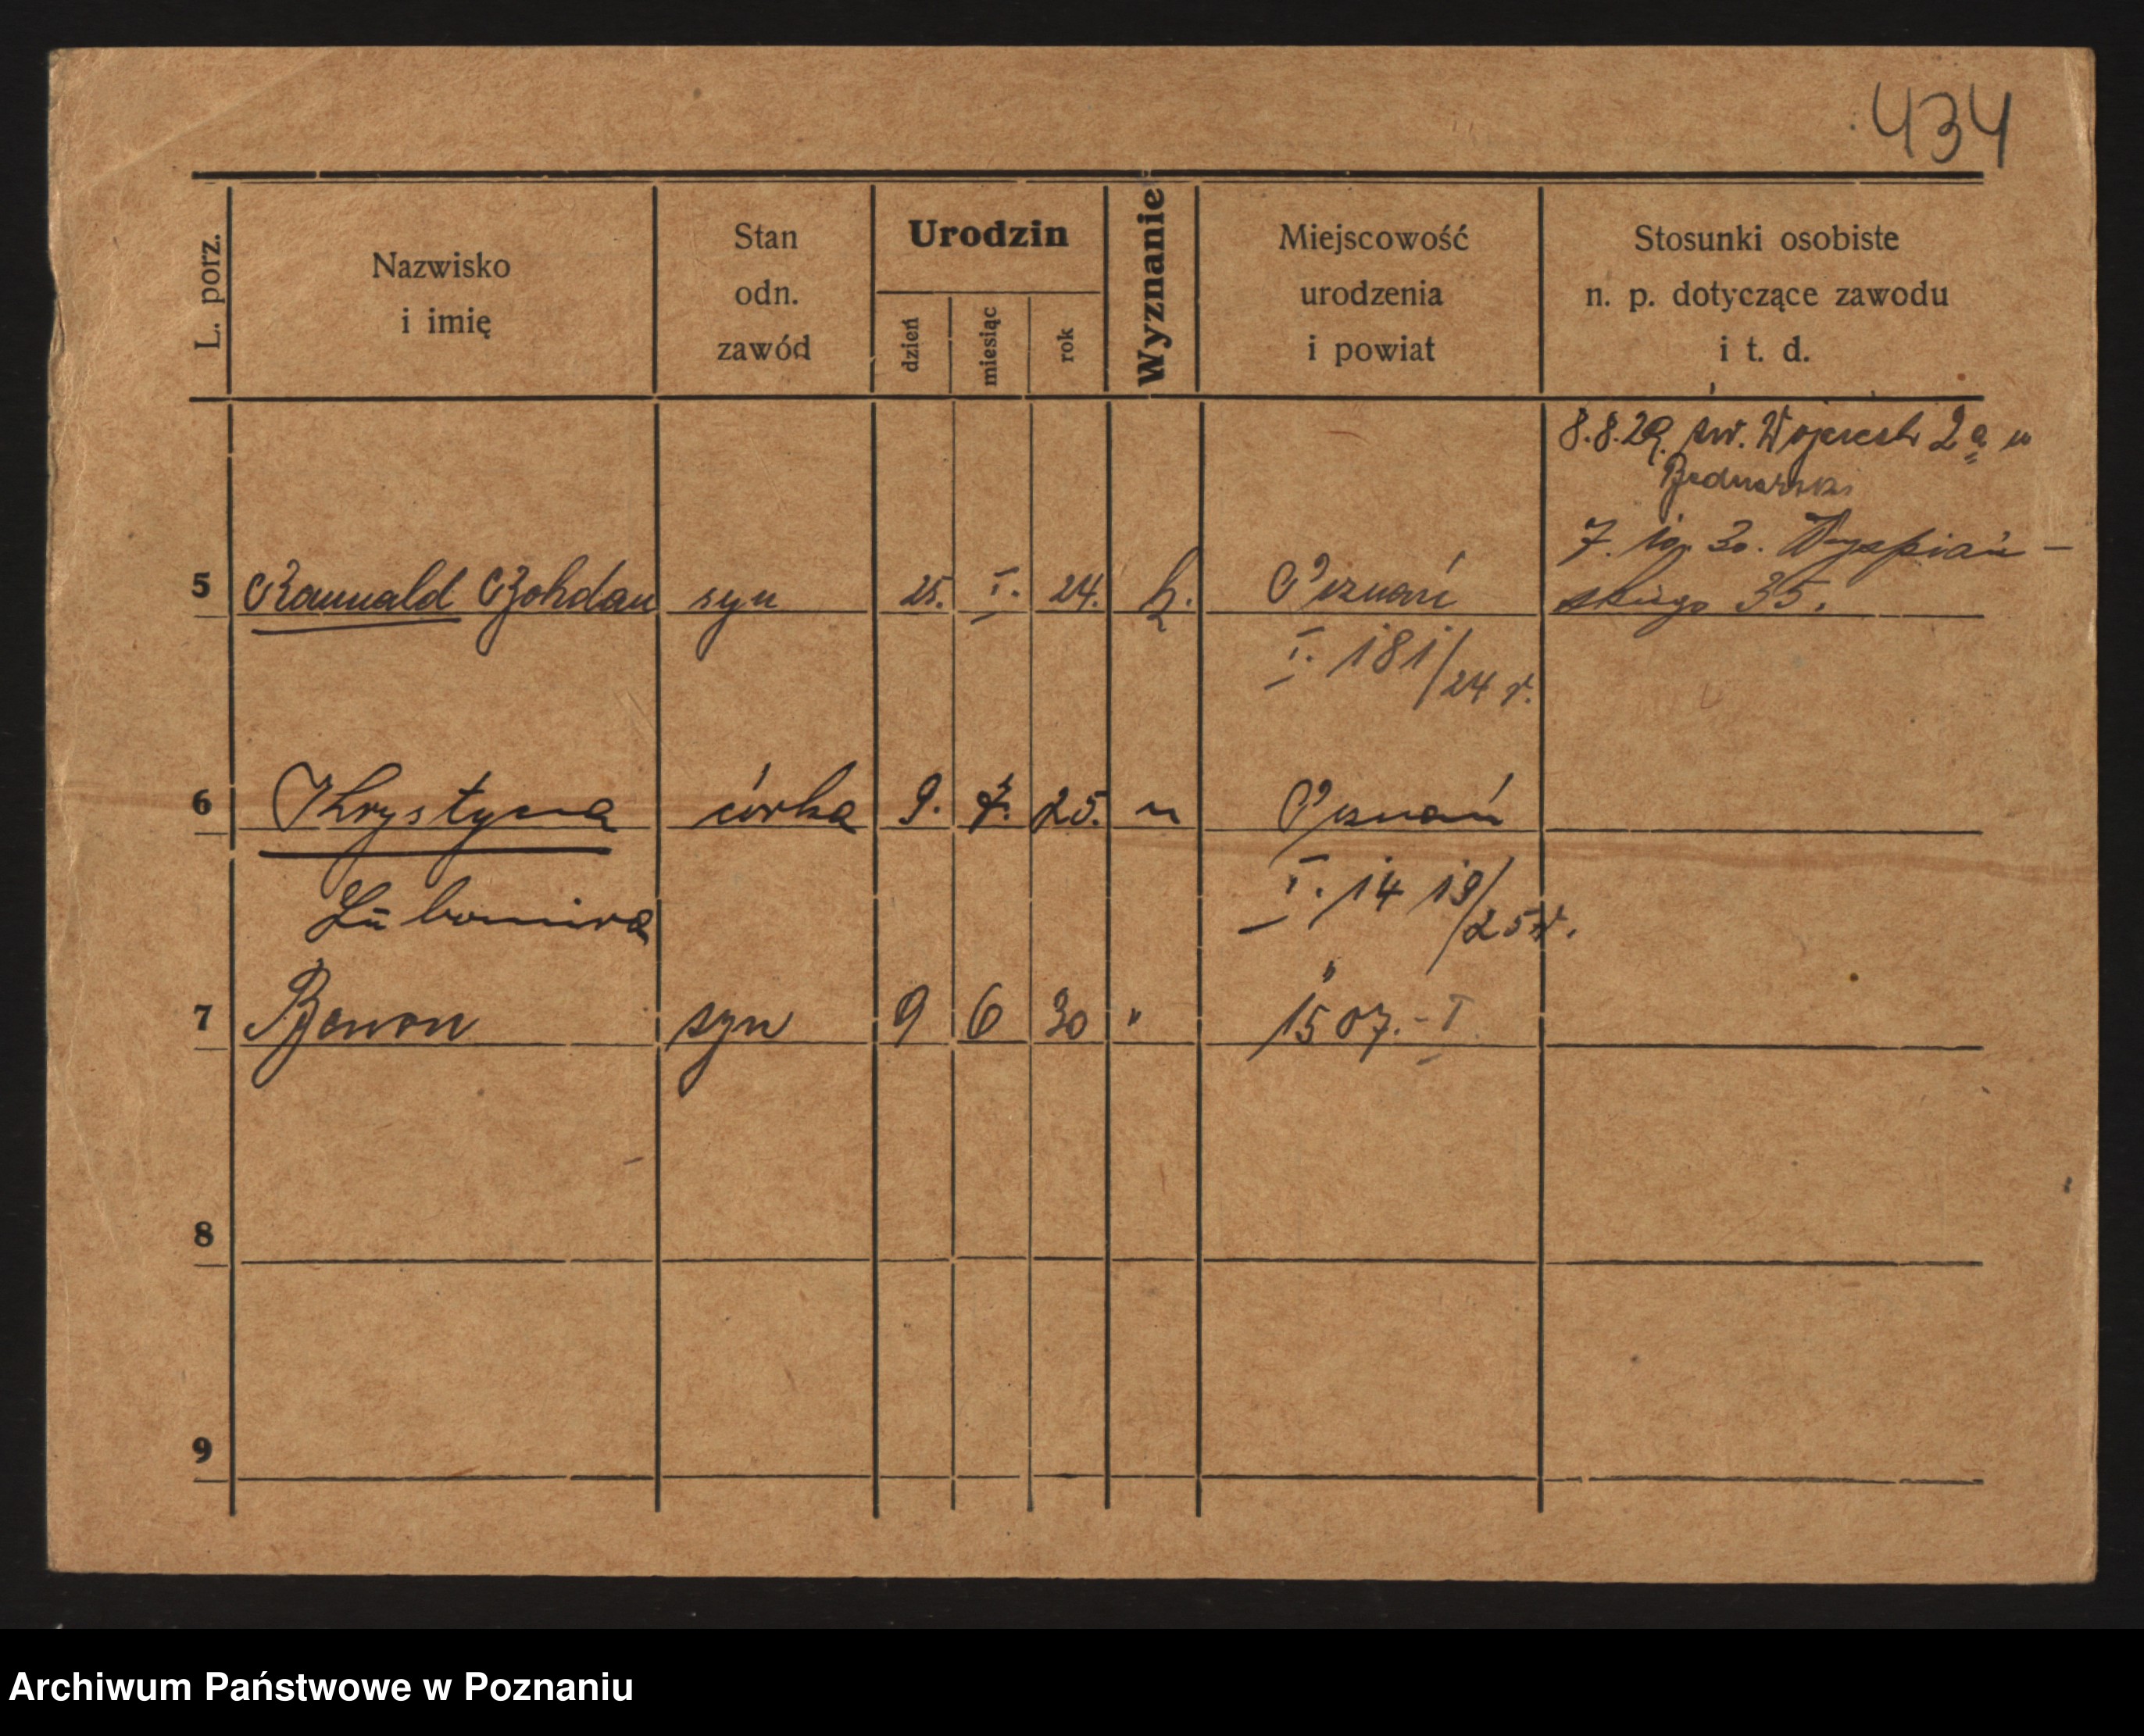 434
L. porz.
Nazwisko
i imię
Stan
odn.
zawód
Urodzin
dzień
miesiąc
rok
Wyznanie
Miejscowość
urodzenia
i powiat
Stosunki osobiste
n. p. dotyczące zawodu
i t. d.
8.8.29. św. Wojciech 2a u
Bednarski
7. 10. 30. Wyspiań-
skiego 35.
5 Romuald Bohdan syn 25. I. 24. k. Poznań
I. 181/24 r.
6 Krystyna córka 9. 7. 25. " Poznań
Lubomira I. 1419/25 r.
"
7 Zenon syn 9 6 30 " 1507.- I
8
9
Archiwum Państwowe w Poznaniu